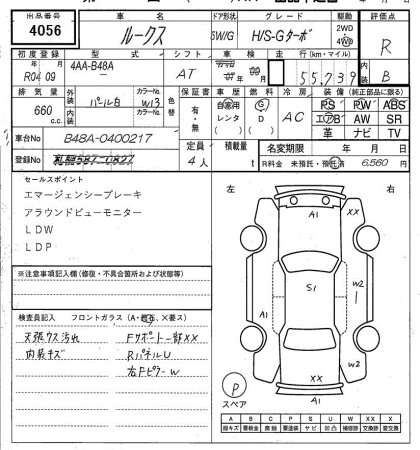 出品番号
4056
車名
ルークス
ドア形状
5W/G
グレード
H/S-Gターボ
駆動
2WD
4WD
評価点
R
内
B
初度登録
年 月
R04 09
型式
4AA-B48A
シフト
AT
車検
年 月
走行 (km・マイル)
55,739
排気量
660 c.c.
外装
パール白
内装
カラーNo.
W13
カラーNo.
色替
保証書
有・無
車歴
自家用
レンタ
( )
燃料
G
D
( )
冷房
AC
装備 (純正部品に限る)
PS PW ABS
エアB AW SR
革 ナビ TV
車台No
B48A-0400217
定員
4人
積載量
t
名変期限
年 月 日
登録No
R料金 未預託・預託済 6,560 円
セールスポイント
エマージェンシーブレーキ
アラウンドビューモニター
LDW
LDP
※注意事項記入欄(修復・不具合箇所および状態等)
検査員記入 フロントガラス(A・飛石、×要ス)
天張ウス汚れ
内装キズ
Fサポート一部XX
RパネルU
右FピラーW
左
右
A1
XX
S1
W2
A1
W2
XX
A1
P
スペア
A B C P S U W X XX
線キズ 要板金 腐蝕 要塗装 サビ 凹凸 補修跡 交換跡